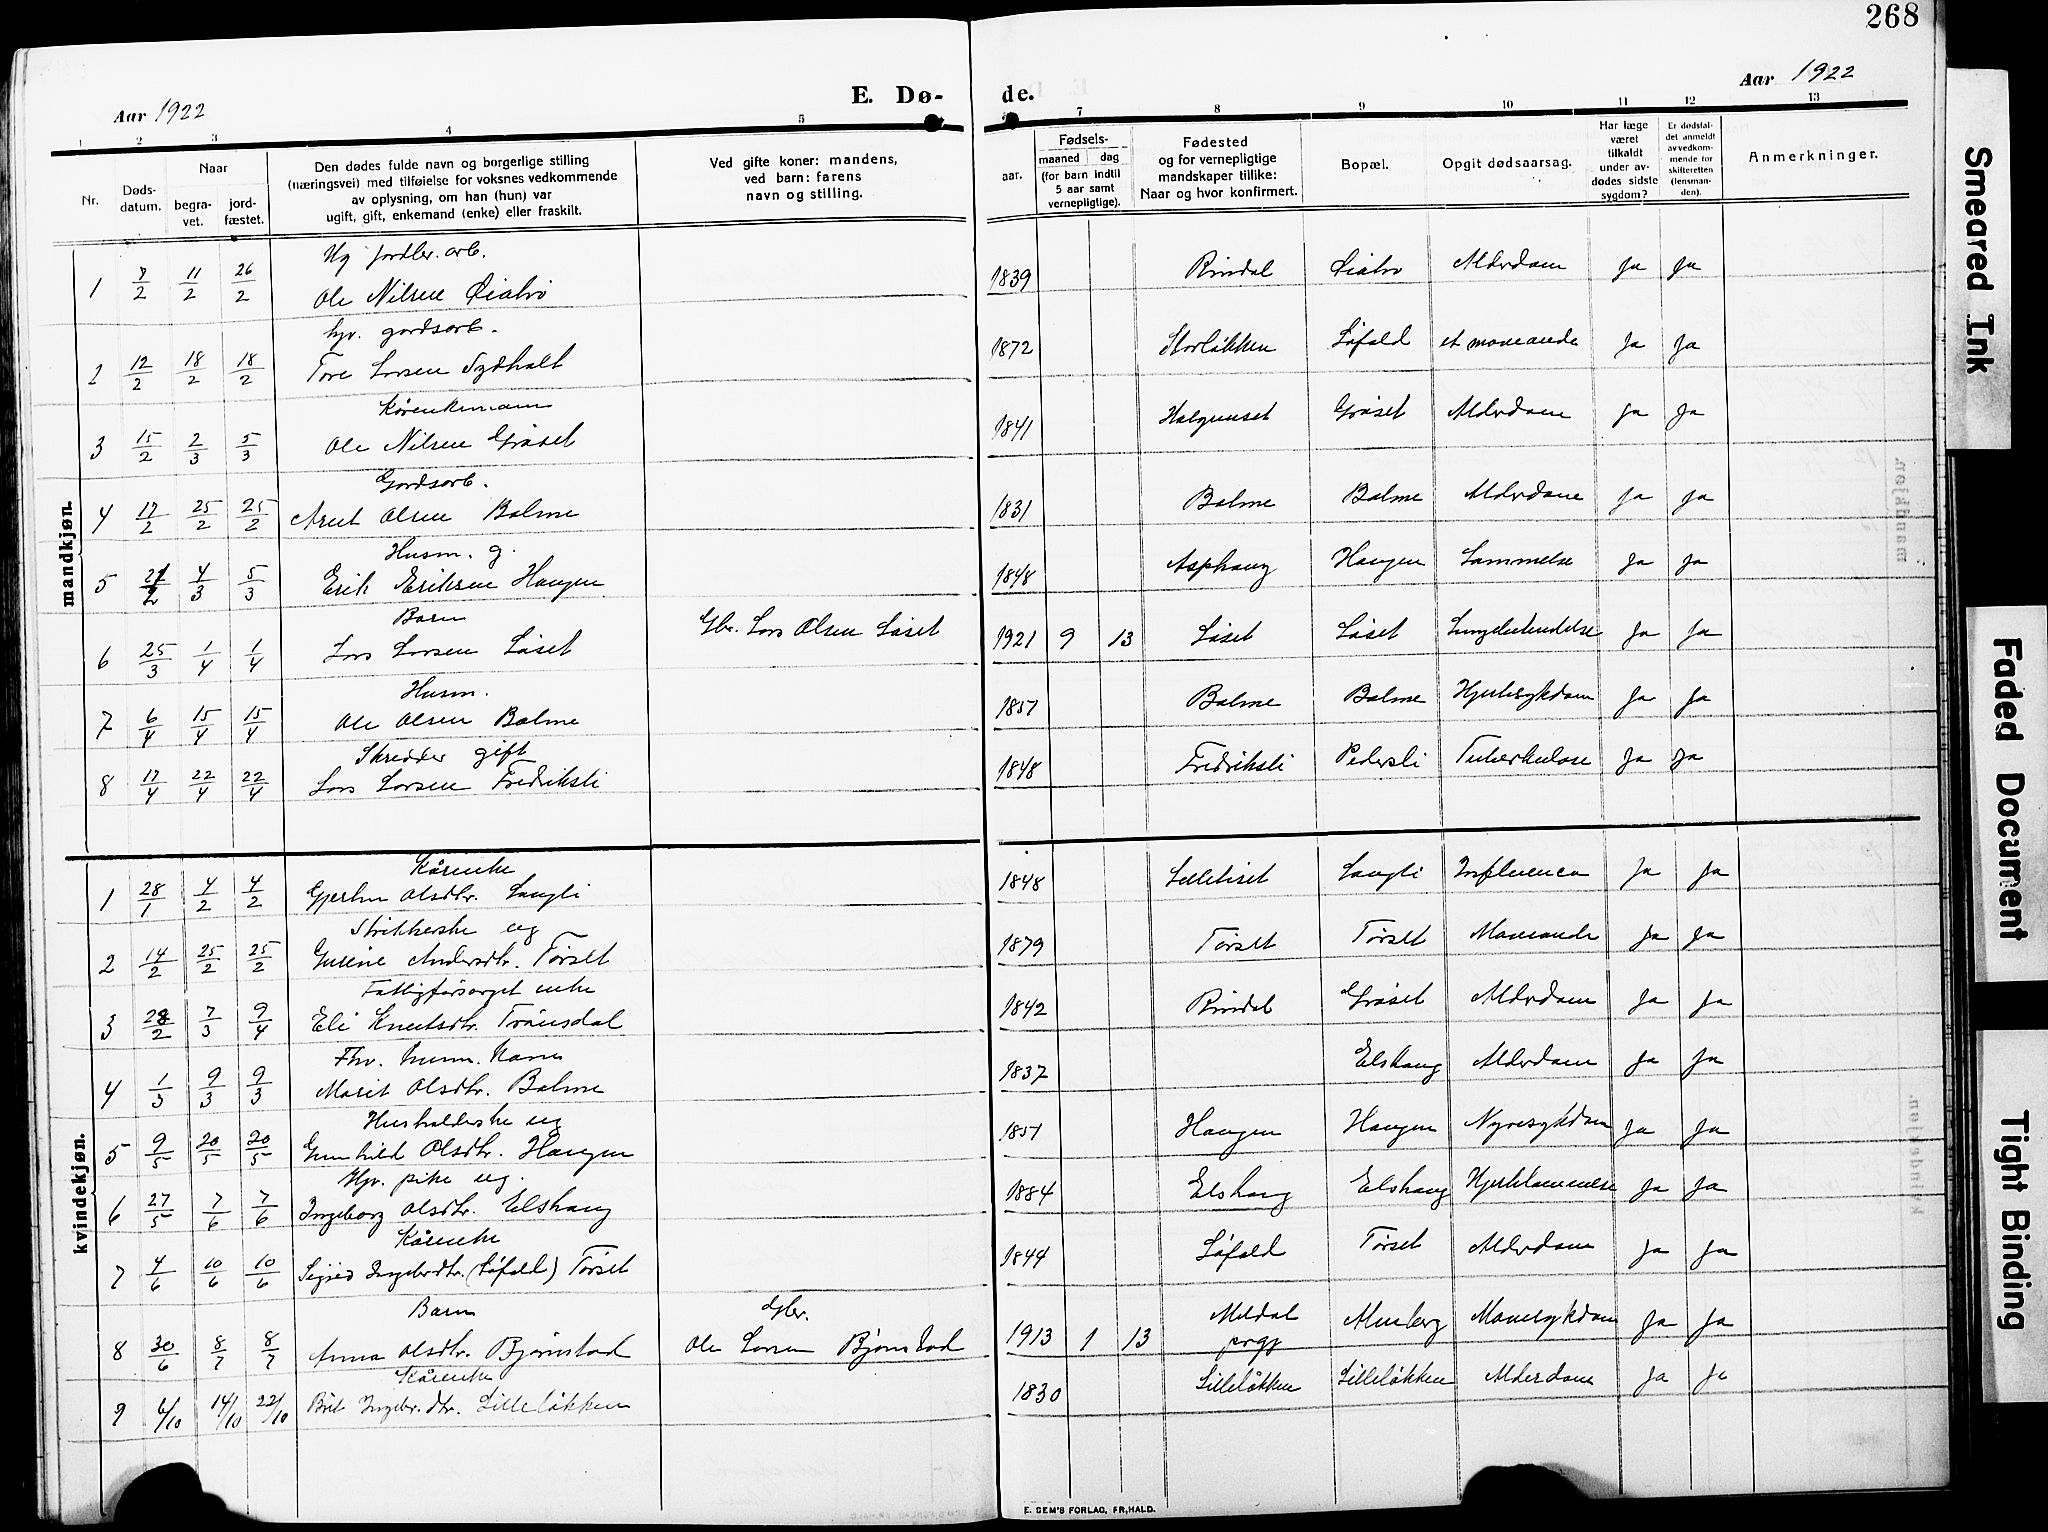 268
Aar 1922
E. Dø-
de.
Aar 1922
1 2 3 4 5 6 7 8 9 10 11 12 13
Nr.
Døds-
datum.
Naar
begra-
vet.
jord-
fæstet.
Den dødes fulde navn og borgerlige stilling
(næringsvei) med tilføielse for voksnes vedkommende
av oplysning, om han (hun) var
ugift, gift, enkemand (enke) eller fraskilt.
Ved gifte koner: mandens,
ved barn: farens
navn og stilling.
aar.
Fødsels-
maaned dag
(for barn indtil
5 aar samt
vernepligtige).
Fødested
og for vernepligtige
mandskaper tillike:
Naar og hvor konfirmert.
Bopæl.
Opgit dødsaarsag.
Har læge
været
tilkaldt
under av-
dødes sidste
sygdom?
Er dødsfal-
det anmeldt
av vedkom-
mende for
skifteretten
(lensman-
den).
Anmerkninger.
mandkjøn.
Ug jordbr. arb.
1 8/2 11/2 26/2 Ole Nilsen 1839 Rindal Alderdom Ja Ja
gardsarb.
2 12/2 18/2 18/2 Tore Larsen Sydhalt 1872 Storløkken Løfald Ja Ja
Kårenkemann
3 15/2 2/3 5/3 Ole Nilsen Grøset 1841 Halgunset Grøset Alderdom Ja Ja
Gardsarb.
4 17/2 25/2 25/2 Arnt Olsen Bolme 1831 Bolme Bolme Alderdom Ja Ja
Husm. g.
5 4/3 5/3 Erik Eriksen Haugen 1848 Asphaug Haugen Lammelse Ja Ja
Barn
6 25/3 1/4 1/4 Lars Larsen Løset Gbr. Lars Olsen Løset 1921 9 13 Løset Løset Lungebetendelse Ja Ja
Husm.
7 6/4 15/4 15/4 Ole Olsen Bolme 1857 Bolme Bolme Hjertesykdom Ja Ja
Skredder gift
8 17/4 22/4 22/4 Lars Larsen Fredriksli 1848 Fredriksli Pedersli Tuberkulose Ja Ja
kvindekjøn.
Kårenke
1 28/1 4/2 4/2 Gjertru Olsdtr. Langli 1848 Langli Influenca Ja Ja
Strikkerske ug
2 14/2 25/2 25/2 Gurine Andersdtr. Tørset 1879 Tørset Tørset Ja Ja
Fattigforsørget enke
3 28/2 7/3 9/4 Eli Knutsdtr. Trønsdal 1842 Rindal Grøset Alderdom Ja Ja
Fhv. husm. kone
4 1/3 9/3 9/3 Marit Olsdtr. Bolme 1837 Elshaug Alderdom Ja Ja
Husholderske ug
5 9/5 20/5 20/5 Gunhild Olsdtr. Haugen 1851 Haugen Haugen Nyresykdom Ja Ja
Hjv. pike ug.
6 27/5 7/6 7/6 Ingeborg Olsdtr. Elshaug 1884 Elshaug Elshaug Hjertelammelse Ja Ja
Kårenke
7 4/6 10/6 10/6 Sigrid Ingebr.dtr. (Løfald) Tørset 1844 Løfald Tørset Alderdom Ja Ja
Barn Gbr. Meldal
8 30/6 8/7 8/7 Anna Olsdtr. Bjørnstad Ole Larsen Bjørnstad 1913 1 13 prgj Mavesykdom Ja Ja
Kårenke
9 6/10 14/10 22/10 Brit Ingebr.dtr. Lilleløkken 1830 Lilleløkken Lilleløkken Alderdom Ja Ja
E. SEM'S FORLAG, FR.HALD.
Smeared Ink
Faded Document
Tight Binding